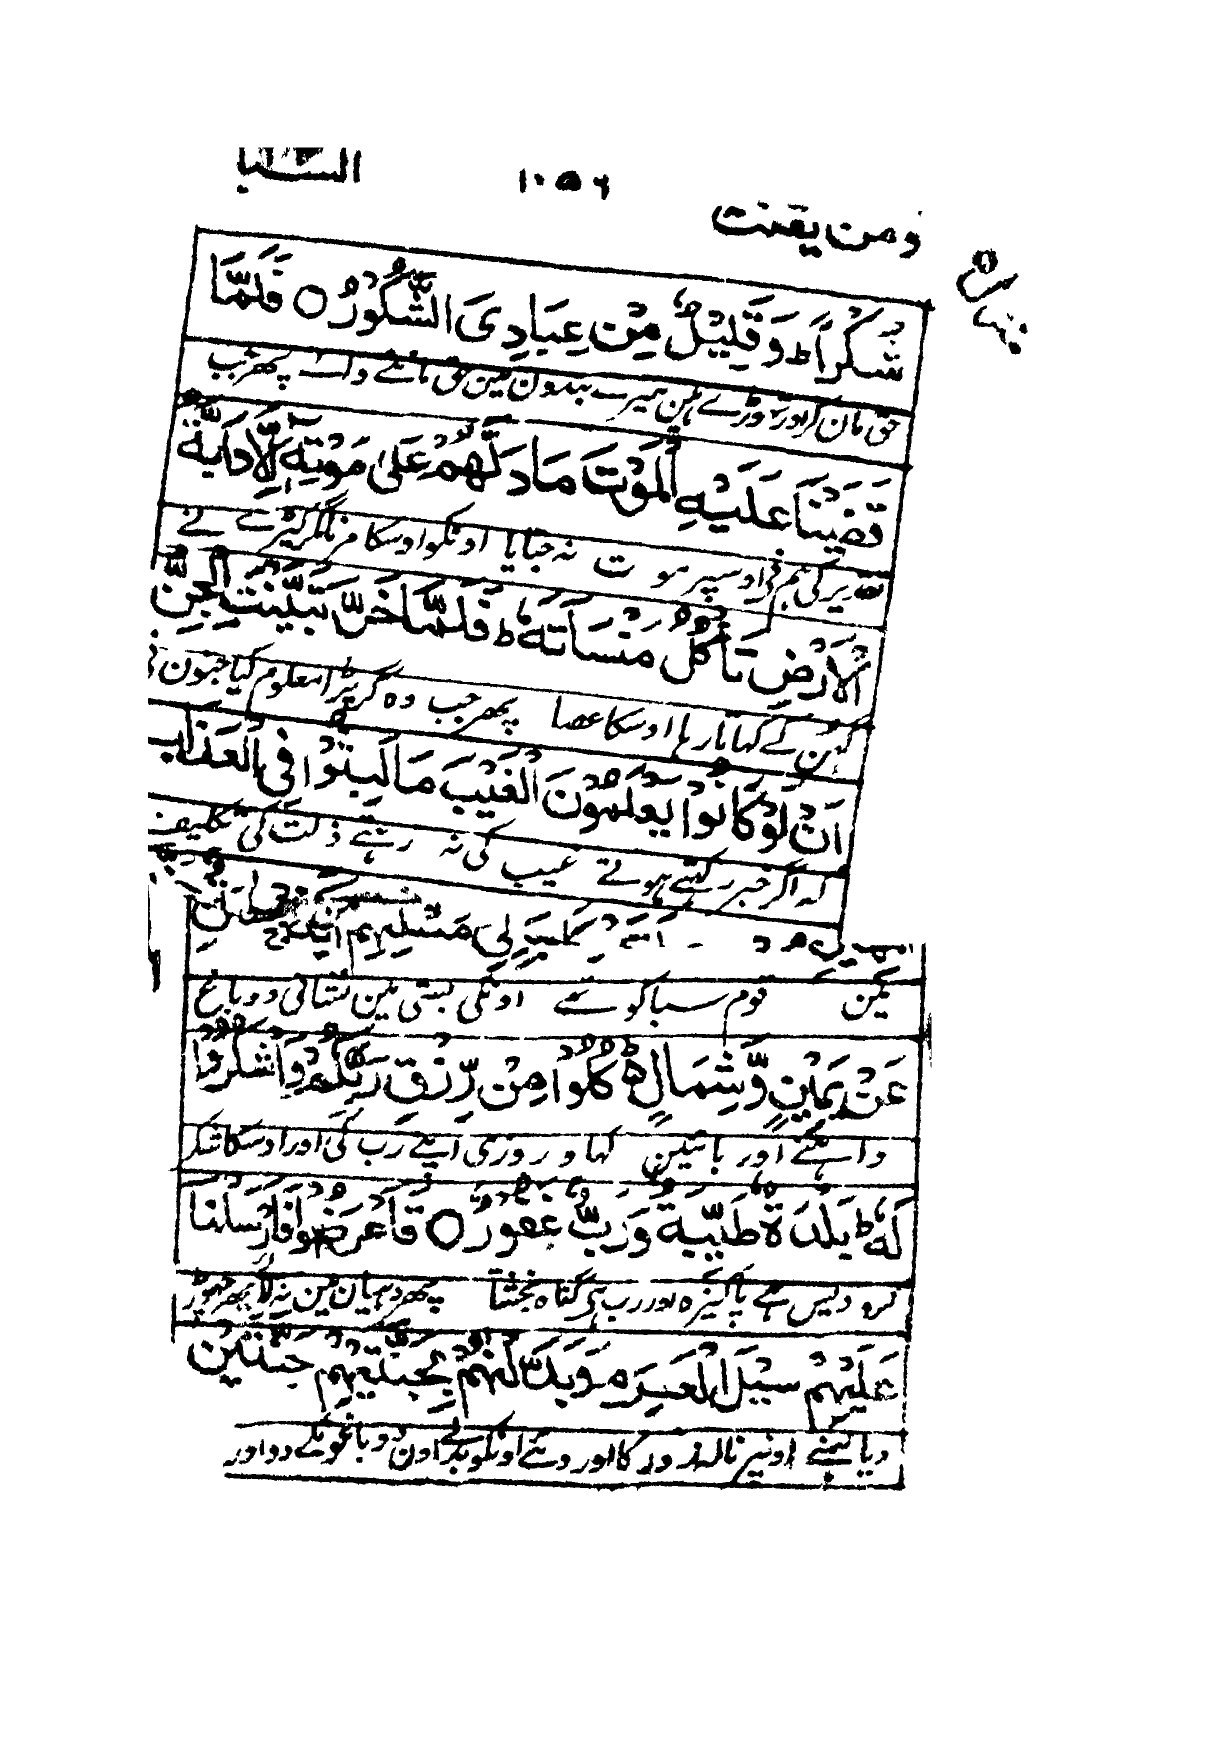 السبا
١٠٥٦
ومن یقنت
شُكْرًا ط وَقَلِيْلٌ مِّنْ عِبَادِیَ الشَّكُوْرُ ○ فَلَمَّا
حق مان کر اور تھوڑے ہین میرے بندون مین حق ماننے والے پھر جب
قَضَيْنَا عَلَيْهِ الْمَوْتَ مَا دَلَّهُمْ عَلٰى مَوْتِهٖٓ اِلَّا دَآبَّةُ
تقدیر کی ہم نی اوسپر موت نہ جتایا اونکو اوسکا مرنا مگر کیڑے نے
الْاَرْضِ تَاْكُلُ مِنْسَاَتَهٗ ط فَلَمَّا خَرَّ تَبَيَّنَتِ الْجِنُّ
گھن کے کہاتا رہا اوسکا عصا پھر جب وہ گر پڑا معلوم کیا جنون نی
اَنْ لَّوْ كَانُوْا يَعْلَمُوْنَ الْغَيْبَ مَا لَبِثُوْا فِی الْعَذَابِ
کہ اگر خبر رکہتے ہوتے غیب کی نہ رہتے ذلت کی تکلیف
مَسْكَنِهِمْ اٰيَةٌ ج جَنَّتٰنِ
مین قوم سبا کو ہے اونکی بستی مین نشانی دو باغ
عَنْ يَّمِيْنٍ وَّشِمَالٍ ط كُلُوْا مِنْ رِّزْقِ رَبِّكُمْ وَاشْكُرُوْا
داہنے اور بائین کہاو روزی اپنے رب کی اور اوسکا شکر
لَهٗ ط بَلْدَةٌ طَيِّبَةٌ وَّرَبٌّ غَفُوْرٌ ○ فَاَعْرَضُوْا فَاَرْسَلْنَا
کرو دیس ہے پاکیزہ اور رب ہی گناہ بخشتا پھر دہیان مین نہ لاے پھر چھوڑ
عَلَيْهِمْ سَيْلَ الْعَرِمِ وَبَدَّلْنٰهُمْ بِجَنَّتَيْهِمْ جَنَّتَيْنِ
دیا ہمنے اونپر نالا زور کا اور دئے اونکو بدلے اون دو باغونکے دو اور